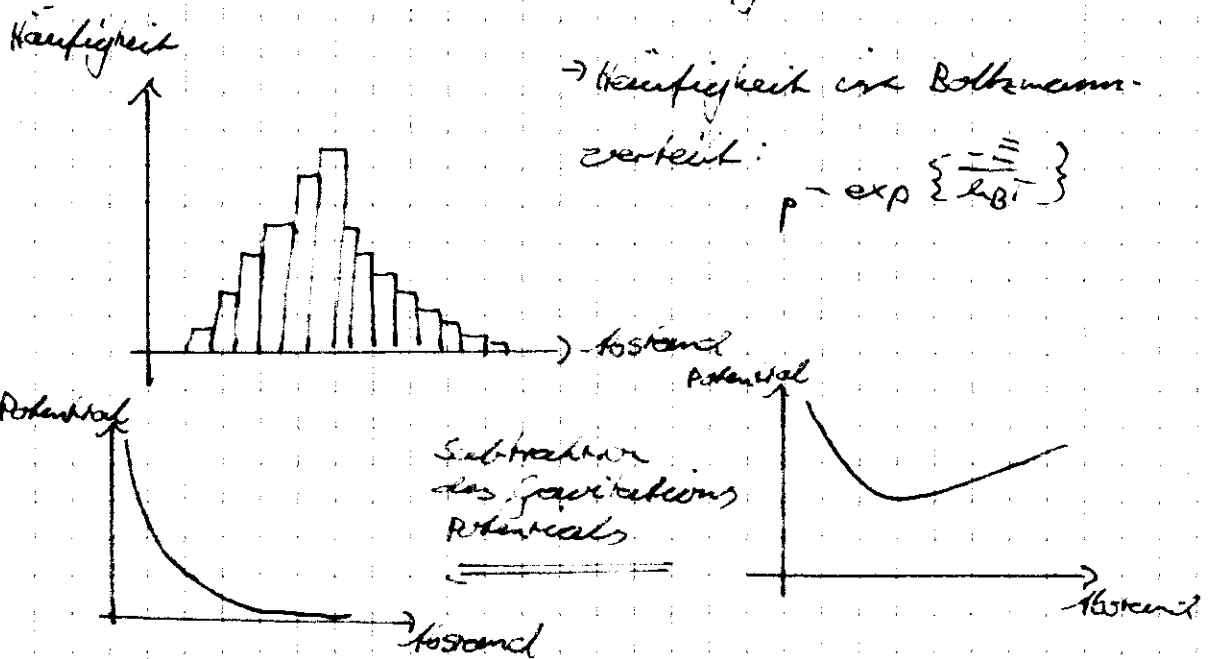 Häufigkeit
→ Häufigkeit ist Boltzmann-
verteilt:
p ~ exp { -E / k_B T }
Abstand
Potential
Potential
Subtraktion
des Gravitations
Potentials
Abstand
Abstand